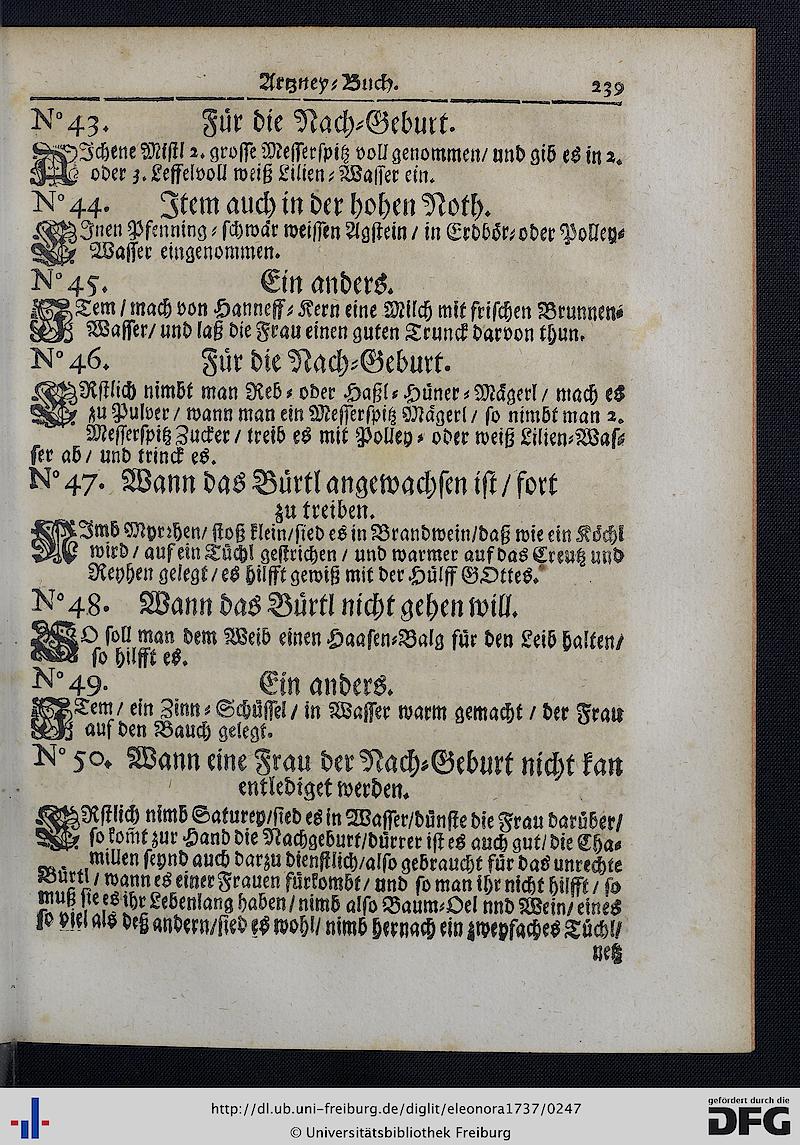 Artzney-Buch. 239
No 43. Für die Nach-Geburt.
AIchene Mistl 2. grosse Messerspitz voll genommen/ und gib es in 2.
oder 3. Leffelvoll weiß Lilien-Wasser ein.
No 44. Item auch in der hohen Noth.
EInen Pfenning-schwär weissen Agstein / in Erdbör-oder Polley-
Wasser eingenommen.
No 45. Ein anders.
ITem / mach von Hanneff-Kern eine Milch mit frischen Brunnen-
Wasser/ und laß die Frau einen guten Trunck darvon thun.
No 46. Für die Nach-Geburt.
ERstlich nimbt man Reb- oder Haßl-Hüner-Mägerl / mach es
zu Pulver / wann man ein Messerspitz Mägerl / so nimbt man 2.
Messerspitz Zucker / treib es mit Polley- oder weiß Lilien-Was-
ser ab / und trinck es.
No 47. Wann das Bürtl angewachsen ist / fort
zu treiben.
NImb Myrrhen/ stoß klein/sied es in Brandwein/daß wie ein Köchl
wird / auf ein Tüchl gestrichen / und warmer auf das Creutz und
Reyhen gelegt / es hilfft gewiß mit der Hülff GOttes.
No 48. Wann das Bürtl nicht gehen will.
SO soll man dem Weib einen Haasen-Balg für den Leib halten/
so hilfft es.
No 49. Ein anders.
ITem / ein Zinn-Schüssel / in Wasser warm gemacht / der Frau
auf den Bauch gelegt.
No 50. Wann eine Frau der Nach-Geburt nicht kan
entlediget werden.
ERstlich nimb Saturey/sied es in Wasser/dünste die Frau darüber/
so kom̃t zur Hand die Nachgeburt/dürrer ist es auch gut/die Cha-
millen seynd auch darzu dienstlich/also gebraucht für das unrechte
Bürtl / wann es einer Frauen fürkombt / und so man ihr nicht hilfft / so
muß sie es ihr Lebenlang haben / nimb also Baum-Oel nnd Wein/ eines
so viel als deß andern/sied es wohl/ nimb hernach ein zweyfaches Tüchl/
netz
http://dl.ub.uni-freiburg.de/diglit/eleonora1737/0247
© Universitätsbibliothek Freiburg
gefördert durch die
DFG